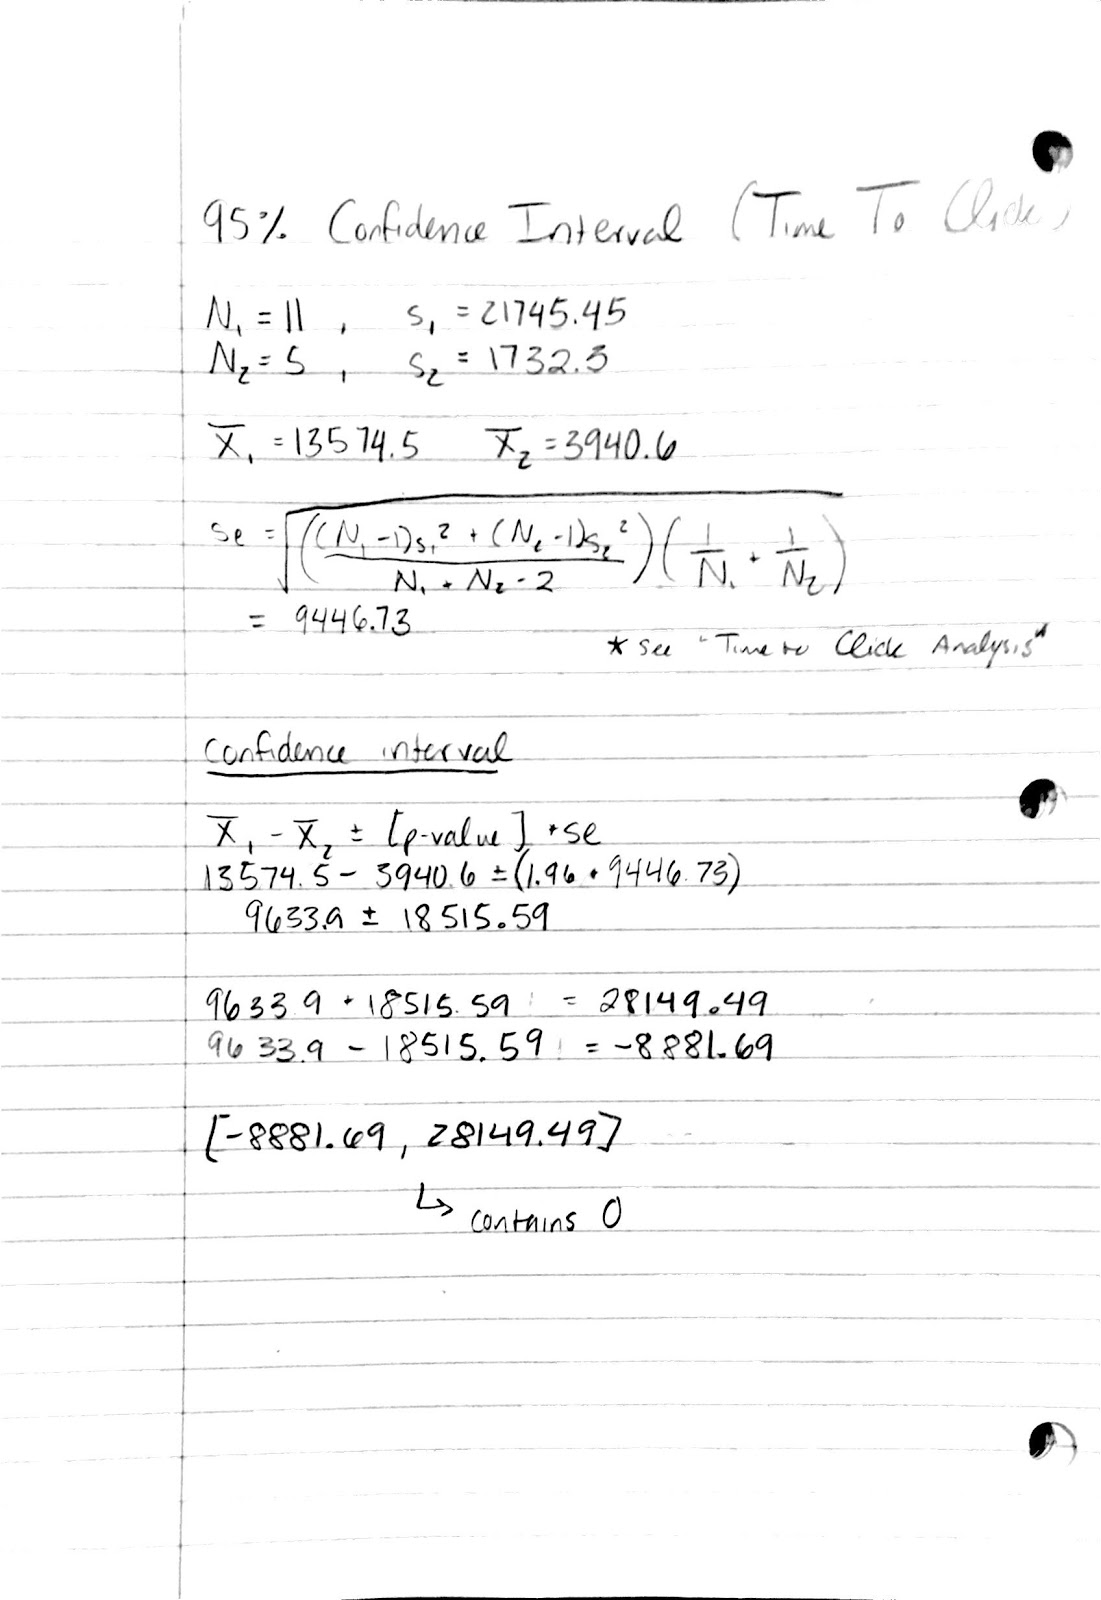 95% Confidence Interval (Time To Click)
N₁ = 11 , s₁ = 21745.45
N₂ = 5 , s₂ = 1732.3
X̄₁ = 13574.5 X̄₂ = 3940.6
se = √(((N₁ -1)s₁² + (N₂ -1)s₂²)/(N₁ + N₂ - 2))(1/N₁ + 1/N₂)
= 9446.73
* see "Time to Click Analysis"
Confidence interval
X̄₁ - X̄₂ ± [p-value] * se
13574.5 - 3940.6 ± (1.96 • 9446.73)
9633.9 ± 18515.59
9633.9 + 18515.59 = 28149.49
9633.9 - 18515.59 = -8881.69
[-8881.69, 28149.49]
↳ contains 0